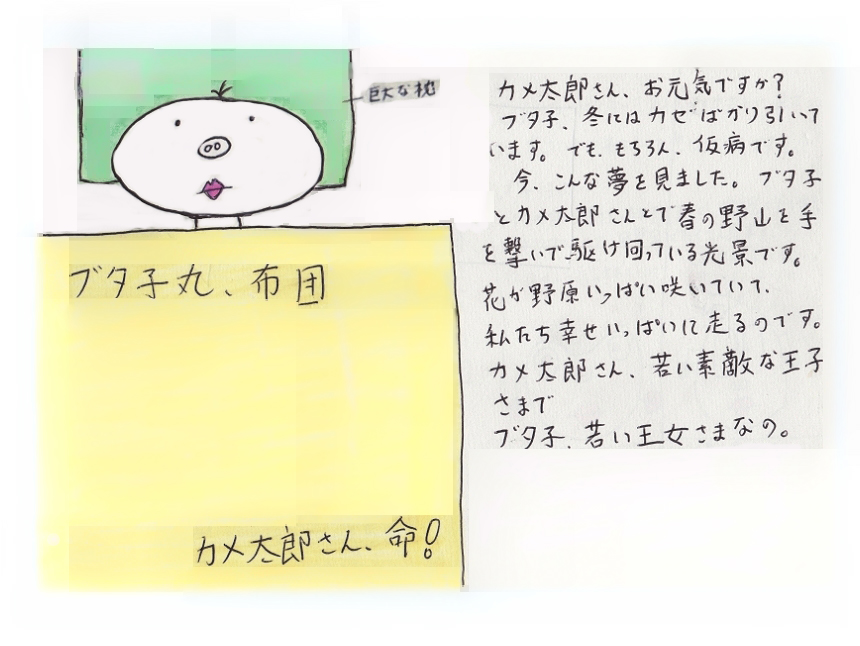 巨大な枕
ブタ子丸、布団
カメ太郎さん、命!
カメ太郎さん、お元気ですか?
ブタ子、冬にはカゼばかり引いて
います。でも、もちろん、仮病です。
今、こんな夢を見ました。ブタ子
とカメ太郎さんとで春の野山を手
を繋いで駆け回っている光景です。
花が野原いっぱい咲いていて、
私たち幸せいっぱいに走るのです。
カメ太郎さん、若い素敵な王子
さまで
ブタ子、若い王女さまなの。